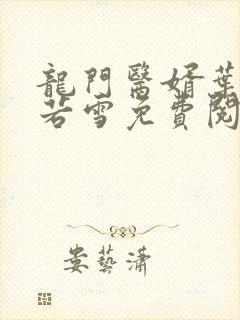 龍門醫婿葉
若雪免費閱
婁藝瀟